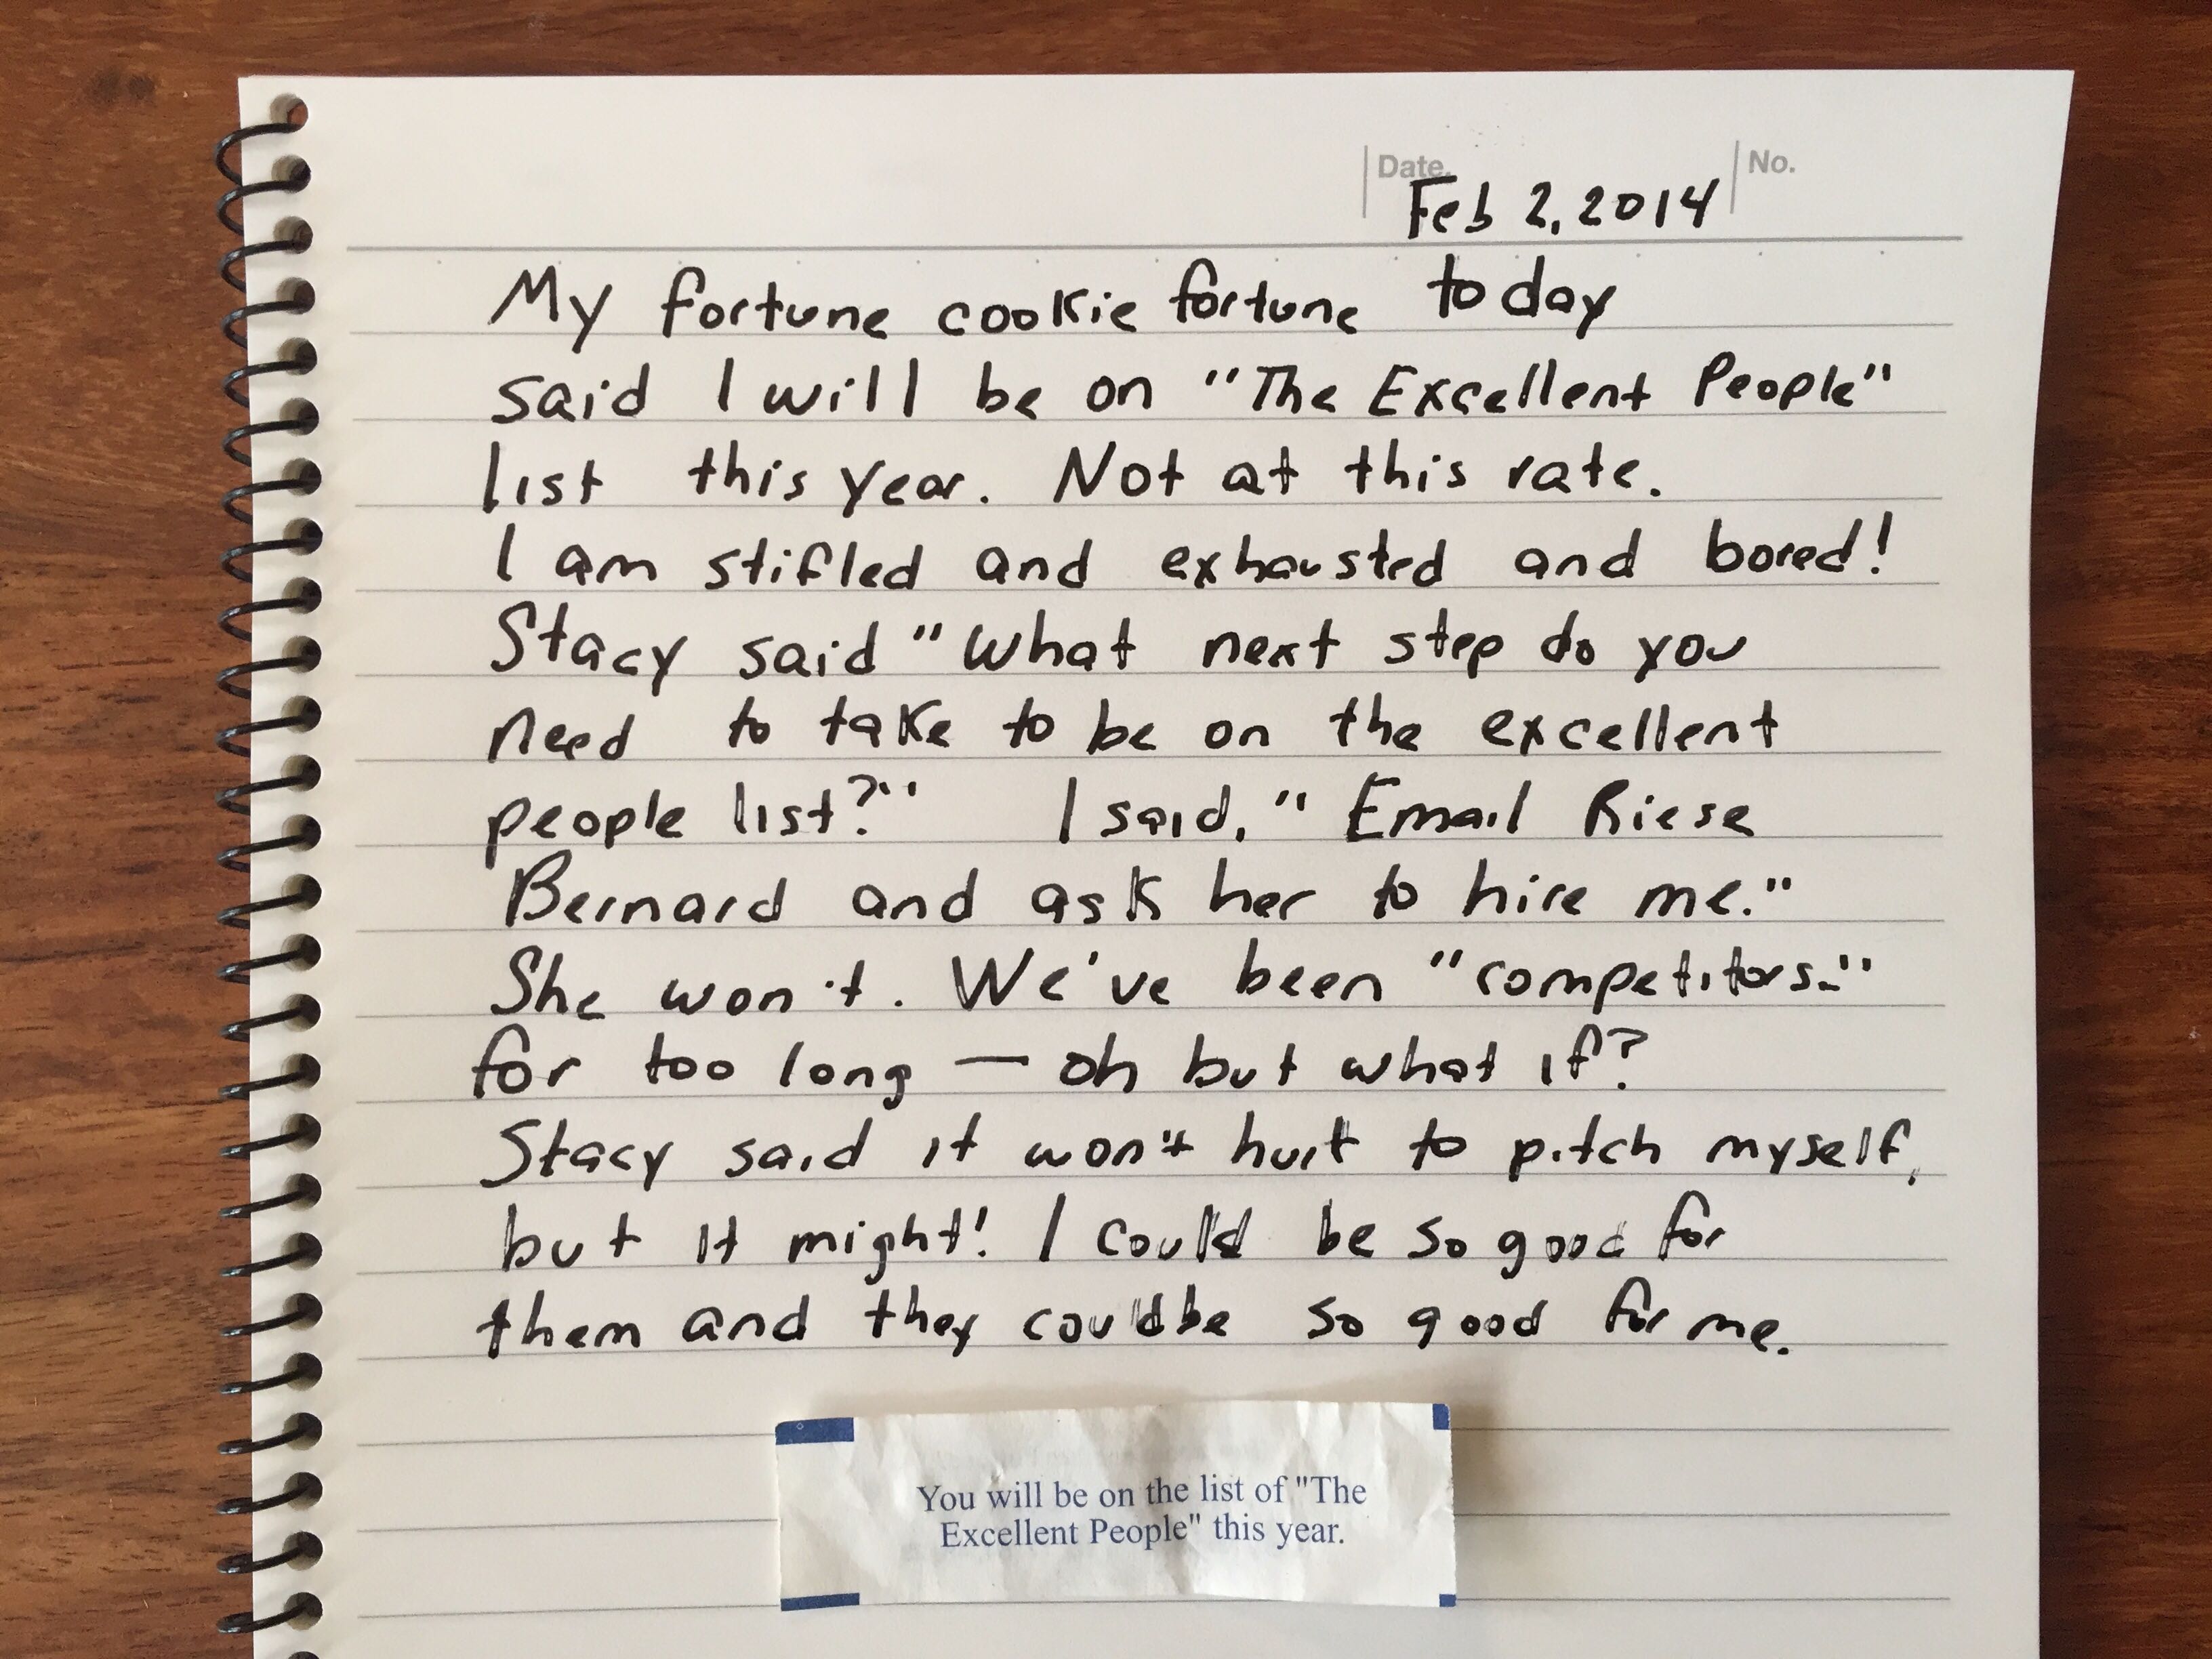 Date. No.
Feb 2, 2014
My fortune cookie fortune today
said I will be on "The Excellent People"
list this year. Not at this rate.
I am stifled and exhausted and bored!
Stacy said "What next step do you
need to take to be on the excellent
people list?" I said, "Email Riese
Bernard and ask her to hire me."
She won't. We've been "competitors."
for too long — oh but what if?
Stacy said it won't hurt to pitch myself,
but it might! I could be so good for
them and they could be so good for me.
You will be on the list of "The
Excellent People" this year.